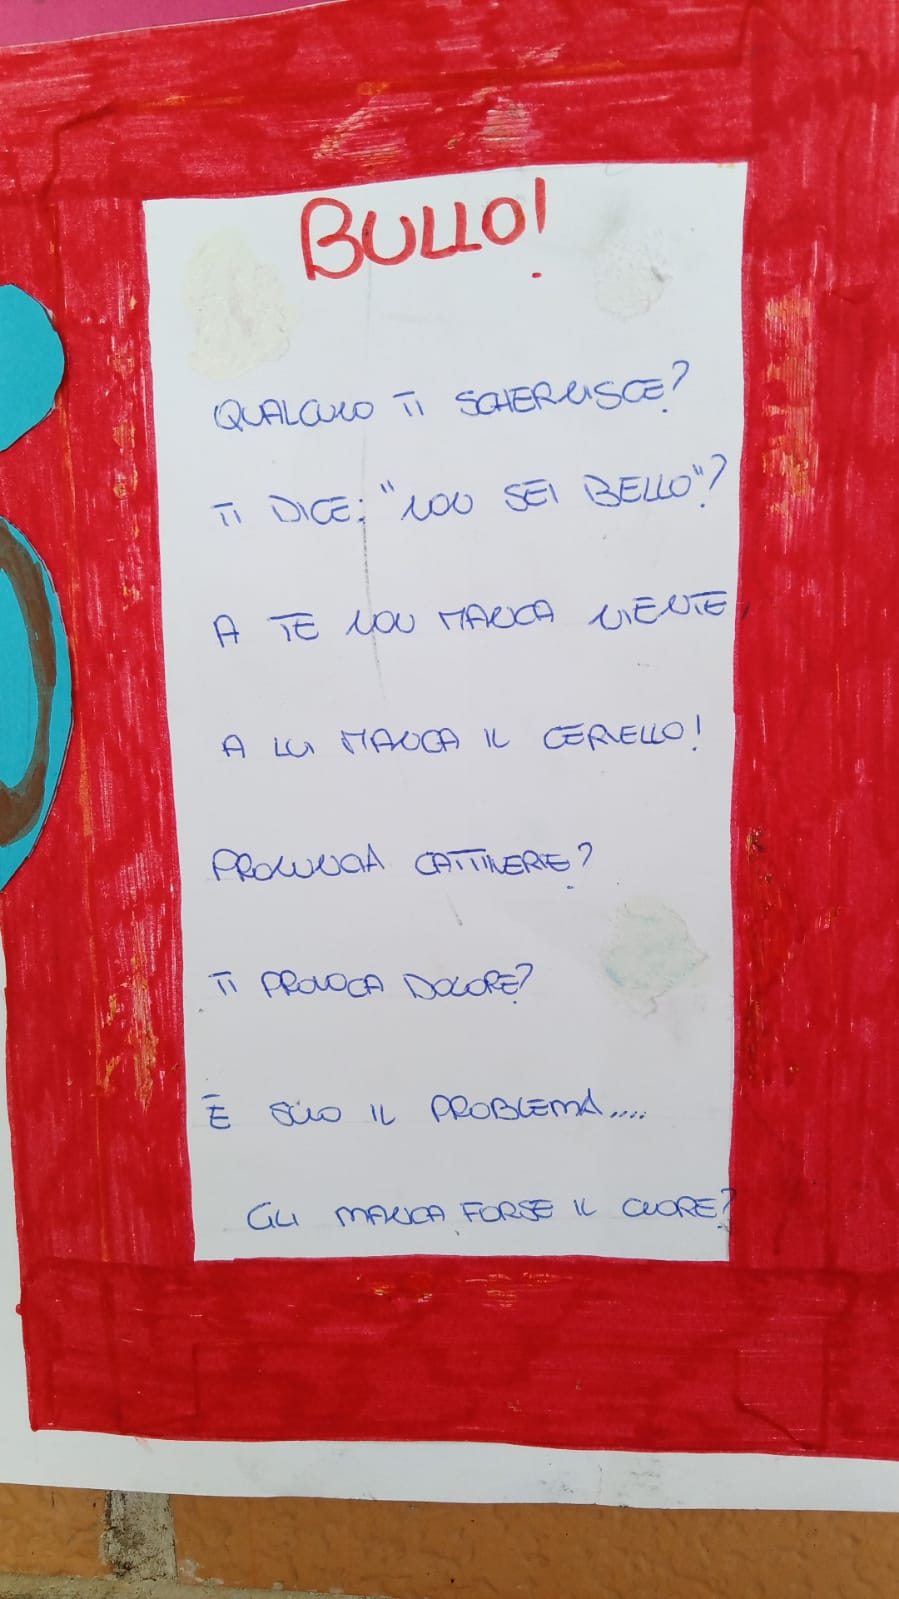 BULLO!
QUALCUNO TI SCHERNISCE?
TI DICE: "NON SEI BELLO"?
A TE NON MANCA NIENTE
A LUI MANCA IL CERVELLO!
PRONUNCIA CATTIVERIE?
TI PROVOCA DOLORE?
È SOLO IL PROBLEMA....
GLI MANCA FORSE IL CUORE?